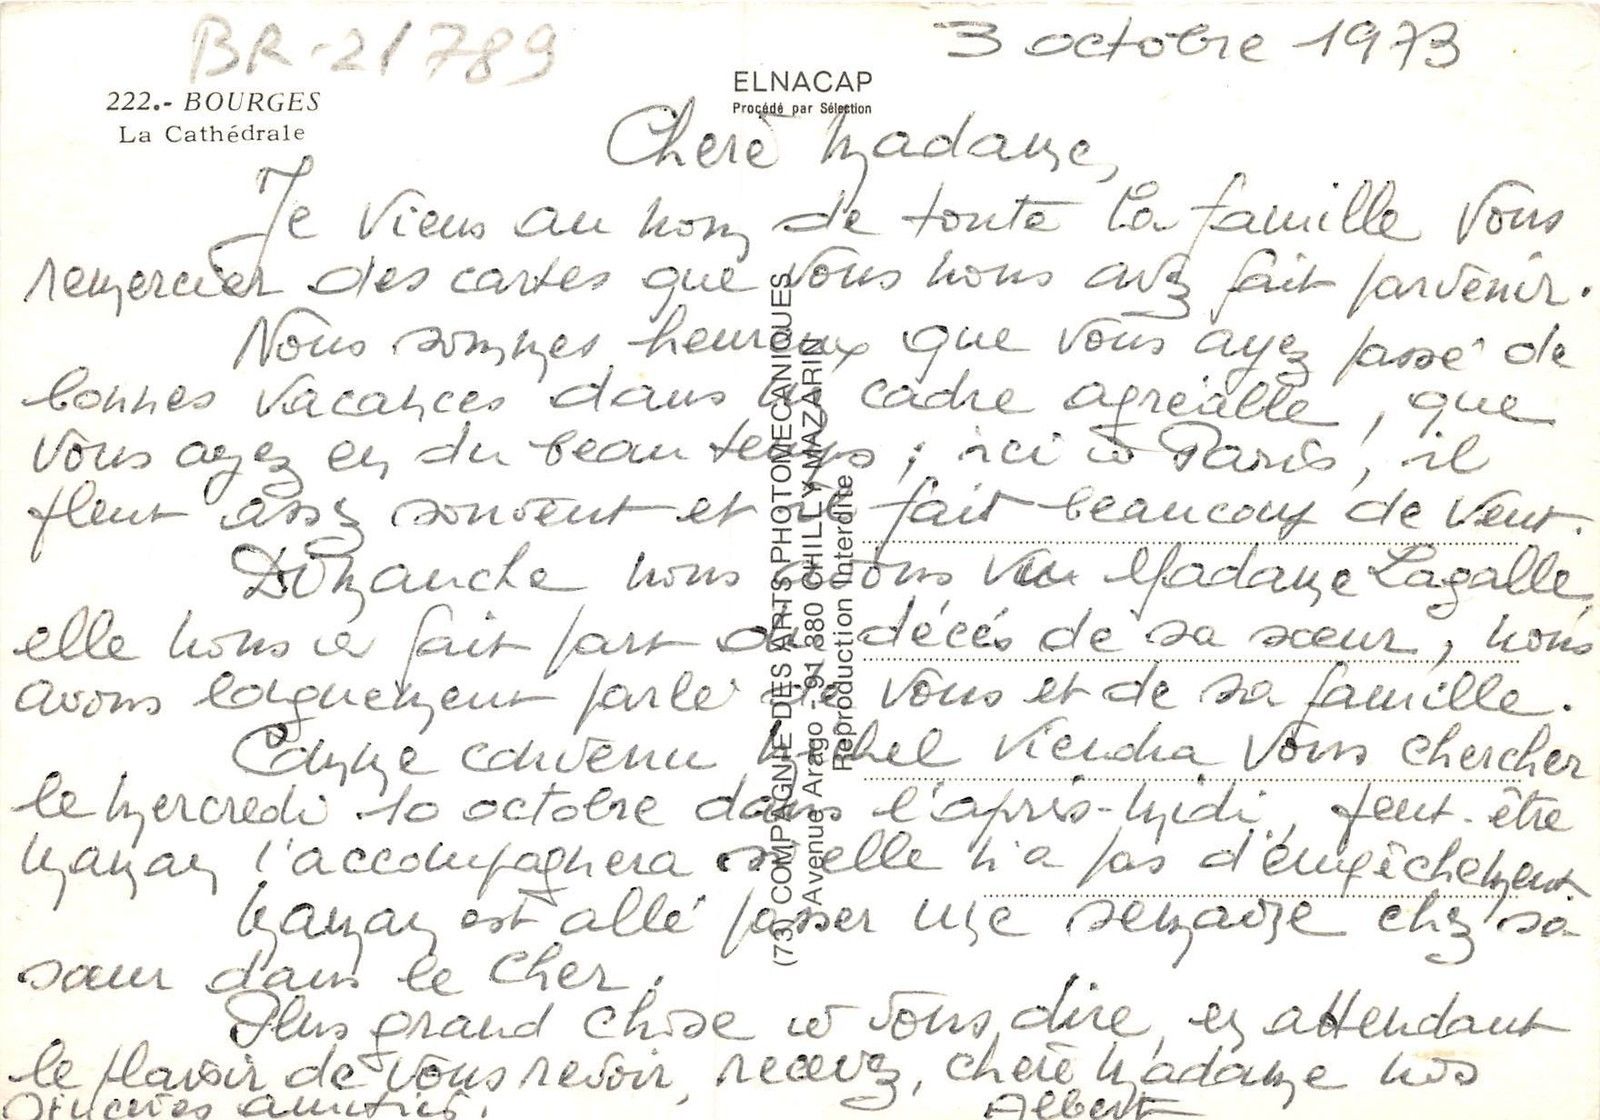 BR-21789
3 octobre 1973
222.- BOURGES
La Cathédrale
ELNACAP
Procédé par Sélection
Chère Madame,
Je viens au nom de toute la famille vous
remercier des cartes que vous nous avez fait parvenir.
Nous sommes heureux que vous ayez passé de
bonnes vacances dans un cadre agréable, que
vous ayez eu du beau temps ; ici à Paris, il
pleut assez souvent et il fait beaucoup de vent.
Dimanche nous avons vu Madame Lagalle,
elle nous a fait part du décés de sa sœur, nous
avons longuement parlé de vous et de sa famille.
Comme convenu Michel viendra vous chercher
le mercredi 10 octobre dans l'après-midi, peut-être
maman l'accompagnera si elle n'a pas d'empêchement
Maman est allé passer une semaine chez sa
sœur dans le Cher.
Plus grand chose à vous dire, en attendant
le plaisir de vous revoir, recevez, chère Madame nos
sincères amitiés.
Albert
(73) COMPAGNIE DES ARTS PHOTOMECANIQUES
Avenue Arago - 91.380 CHILLY-MAZARIN
Reproduction Interdite